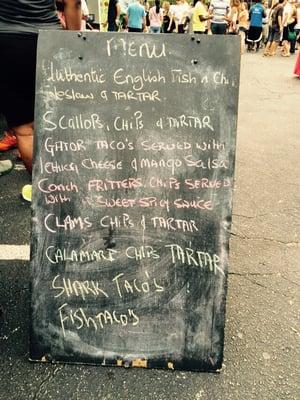 MENU
Authentic English Fish n Chi
leslaw & TARTAR
Scallops, Chips & TARTAR
Gator Taco's served with
Cheese & Mango Salsa
Conch Fritters. Chips served
with SWEET SPICY SAUCE
CLAMS CHIPS & TARTAR
CALAMARI CHIPS TARTAR
SHARK TACO'S
FISH TACO'S